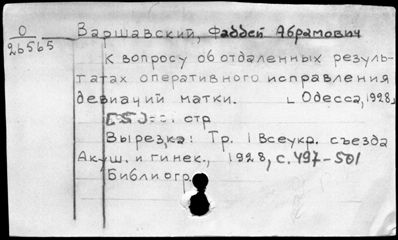 О
26565
Варшавский, Фаддей Абрамович
К вопросу об отдаленных резуль-
татах оперативного исправления
девиаций матки. [Одесса, 1928,
[5] стр
Вырезка: Тр. I Всеукр. съезда
Акуш. и гинек., 1928, с. 497-501
Библиогр.